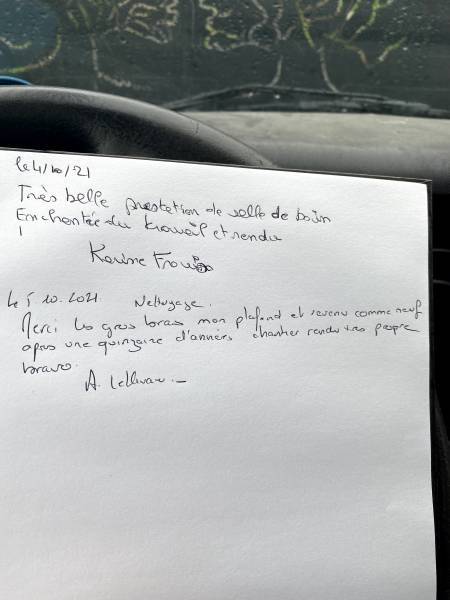 le 4/10/21
Très belle prestation de salle de bain
Enchantée du travail et rendu
Karine
Le 5 10.2021. Nettoyage.
Merci les gros bras mon plafond et revenu comme neuf
apres une quinzaine d'années chantier rendu très propre
bravo.
A.